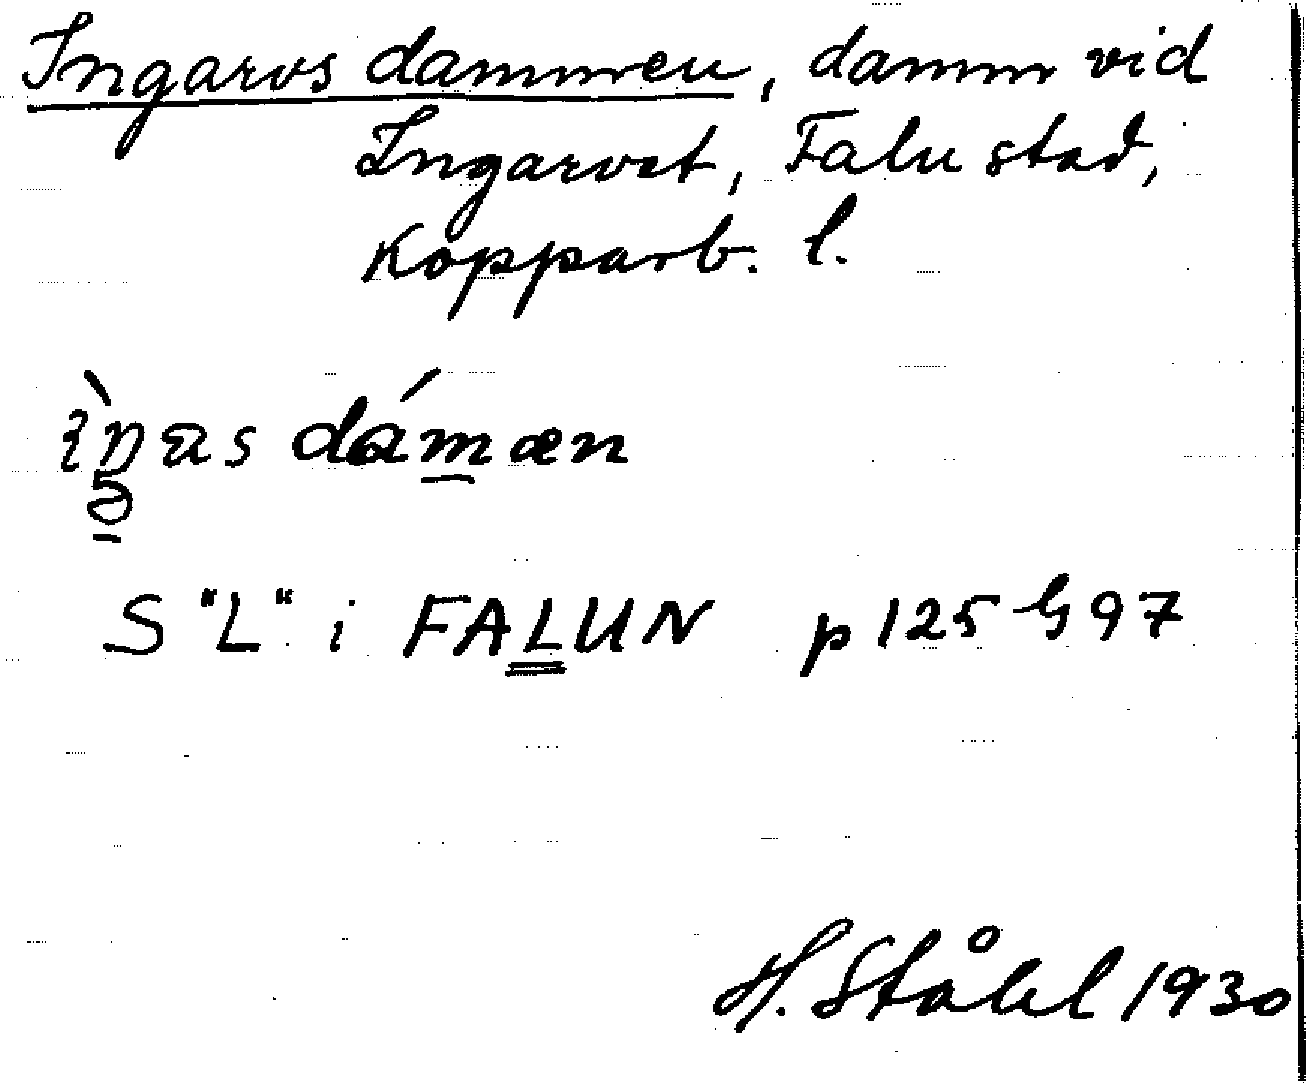 Ingarvsdammen, damm vid
Ingarvet, Falu stad,
Kopparb. l.
S "L" i FALUN p 125 h 97
H. Ståhl 1930